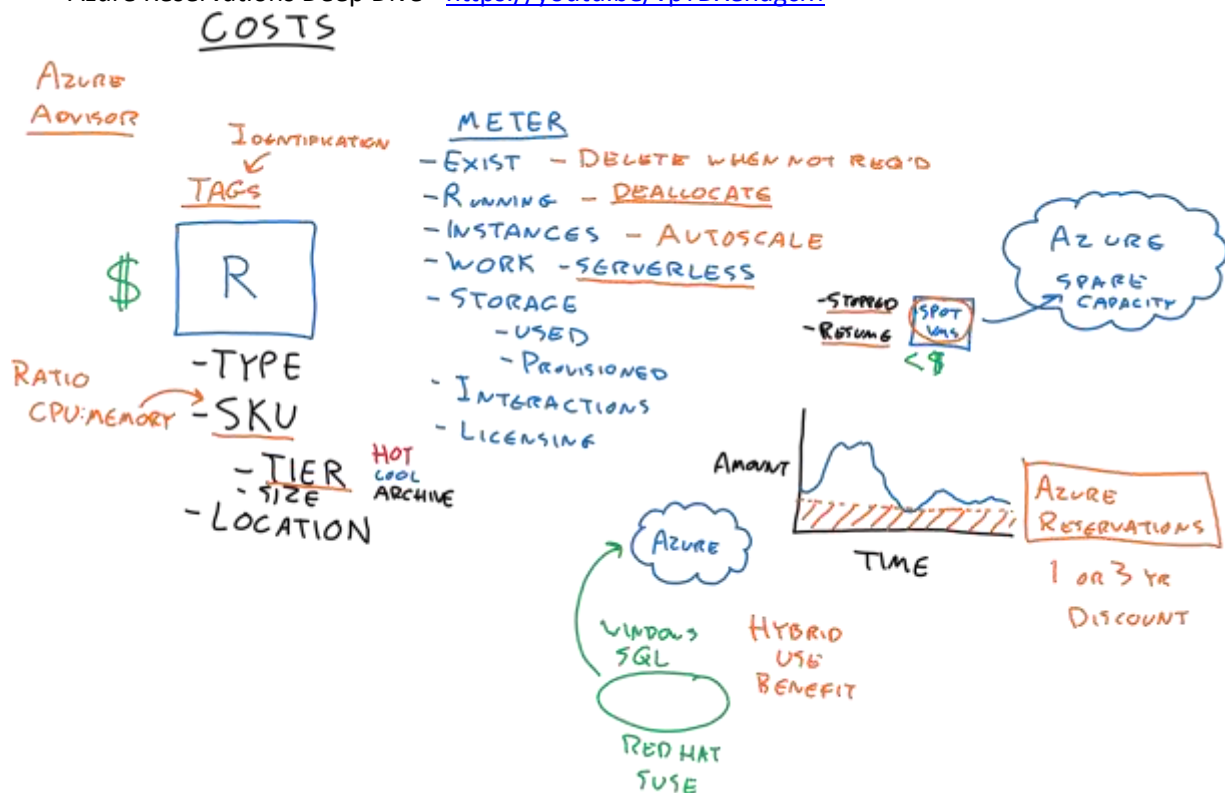 COSTS
AZURE
ADVISOR
IDENTIFICATION
TAGS
$
R
-TYPE
RATIO
CPU:MEMORY
-SKU
-TIER
-SIZE
HOT
COOL
ARCHIVE
-LOCATION
METER
-EXIST - DELETE WHEN NOT REQ'D
-RUNNING - DEALLOCATE
-INSTANCES - AUTOSCALE
-WORK -SERVERLESS
-STORAGE
-USED
-PROVISIONED
-INTERACTIONS
-LICENSING
AZURE
SPARE
CAPACITY
-STOPPED
-RESUME
SPOT
VMS
<$
AMOUNT
TIME
AZURE
RESERVATIONS
1 OR 3 YR
DISCOUNT
AZURE
WINDOWS
SQL
HYBRID
USE
BENEFIT
RED HAT
SUSE